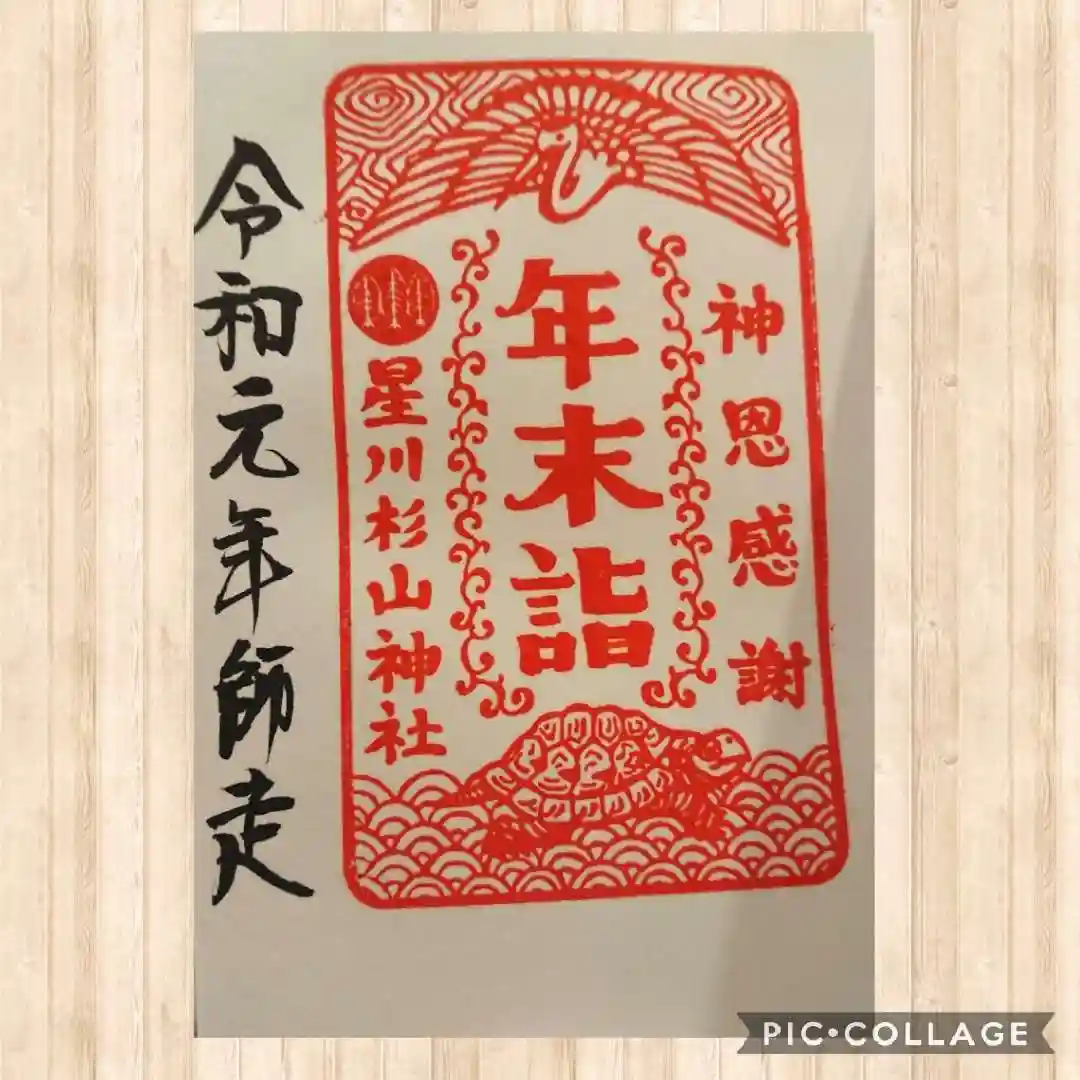 神恩感謝
年末詣
星川杉山神社
令和元年師走
PIC•COLLAGE